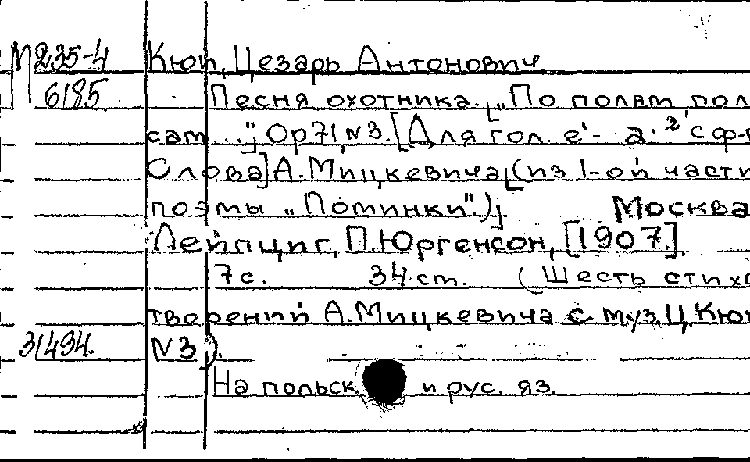 М 235-4 Кюи, Цезарь Антонович
6185 Песня охотника. [„По полям пол
сам ..."; Op 71 N 3. [Для гол. e¹- a² с ф-
Слова] А. Мицкевича, (из 1-ой части
поэмы „Поминки".); Москва
Лейпциг, П. Юргенсон, [1907.]
7с. 34 cm. (Шесть стихо
творений А. Мицкевича с муз. Ц. Кюи
31494. N 3).
На польск. и рус. яз.